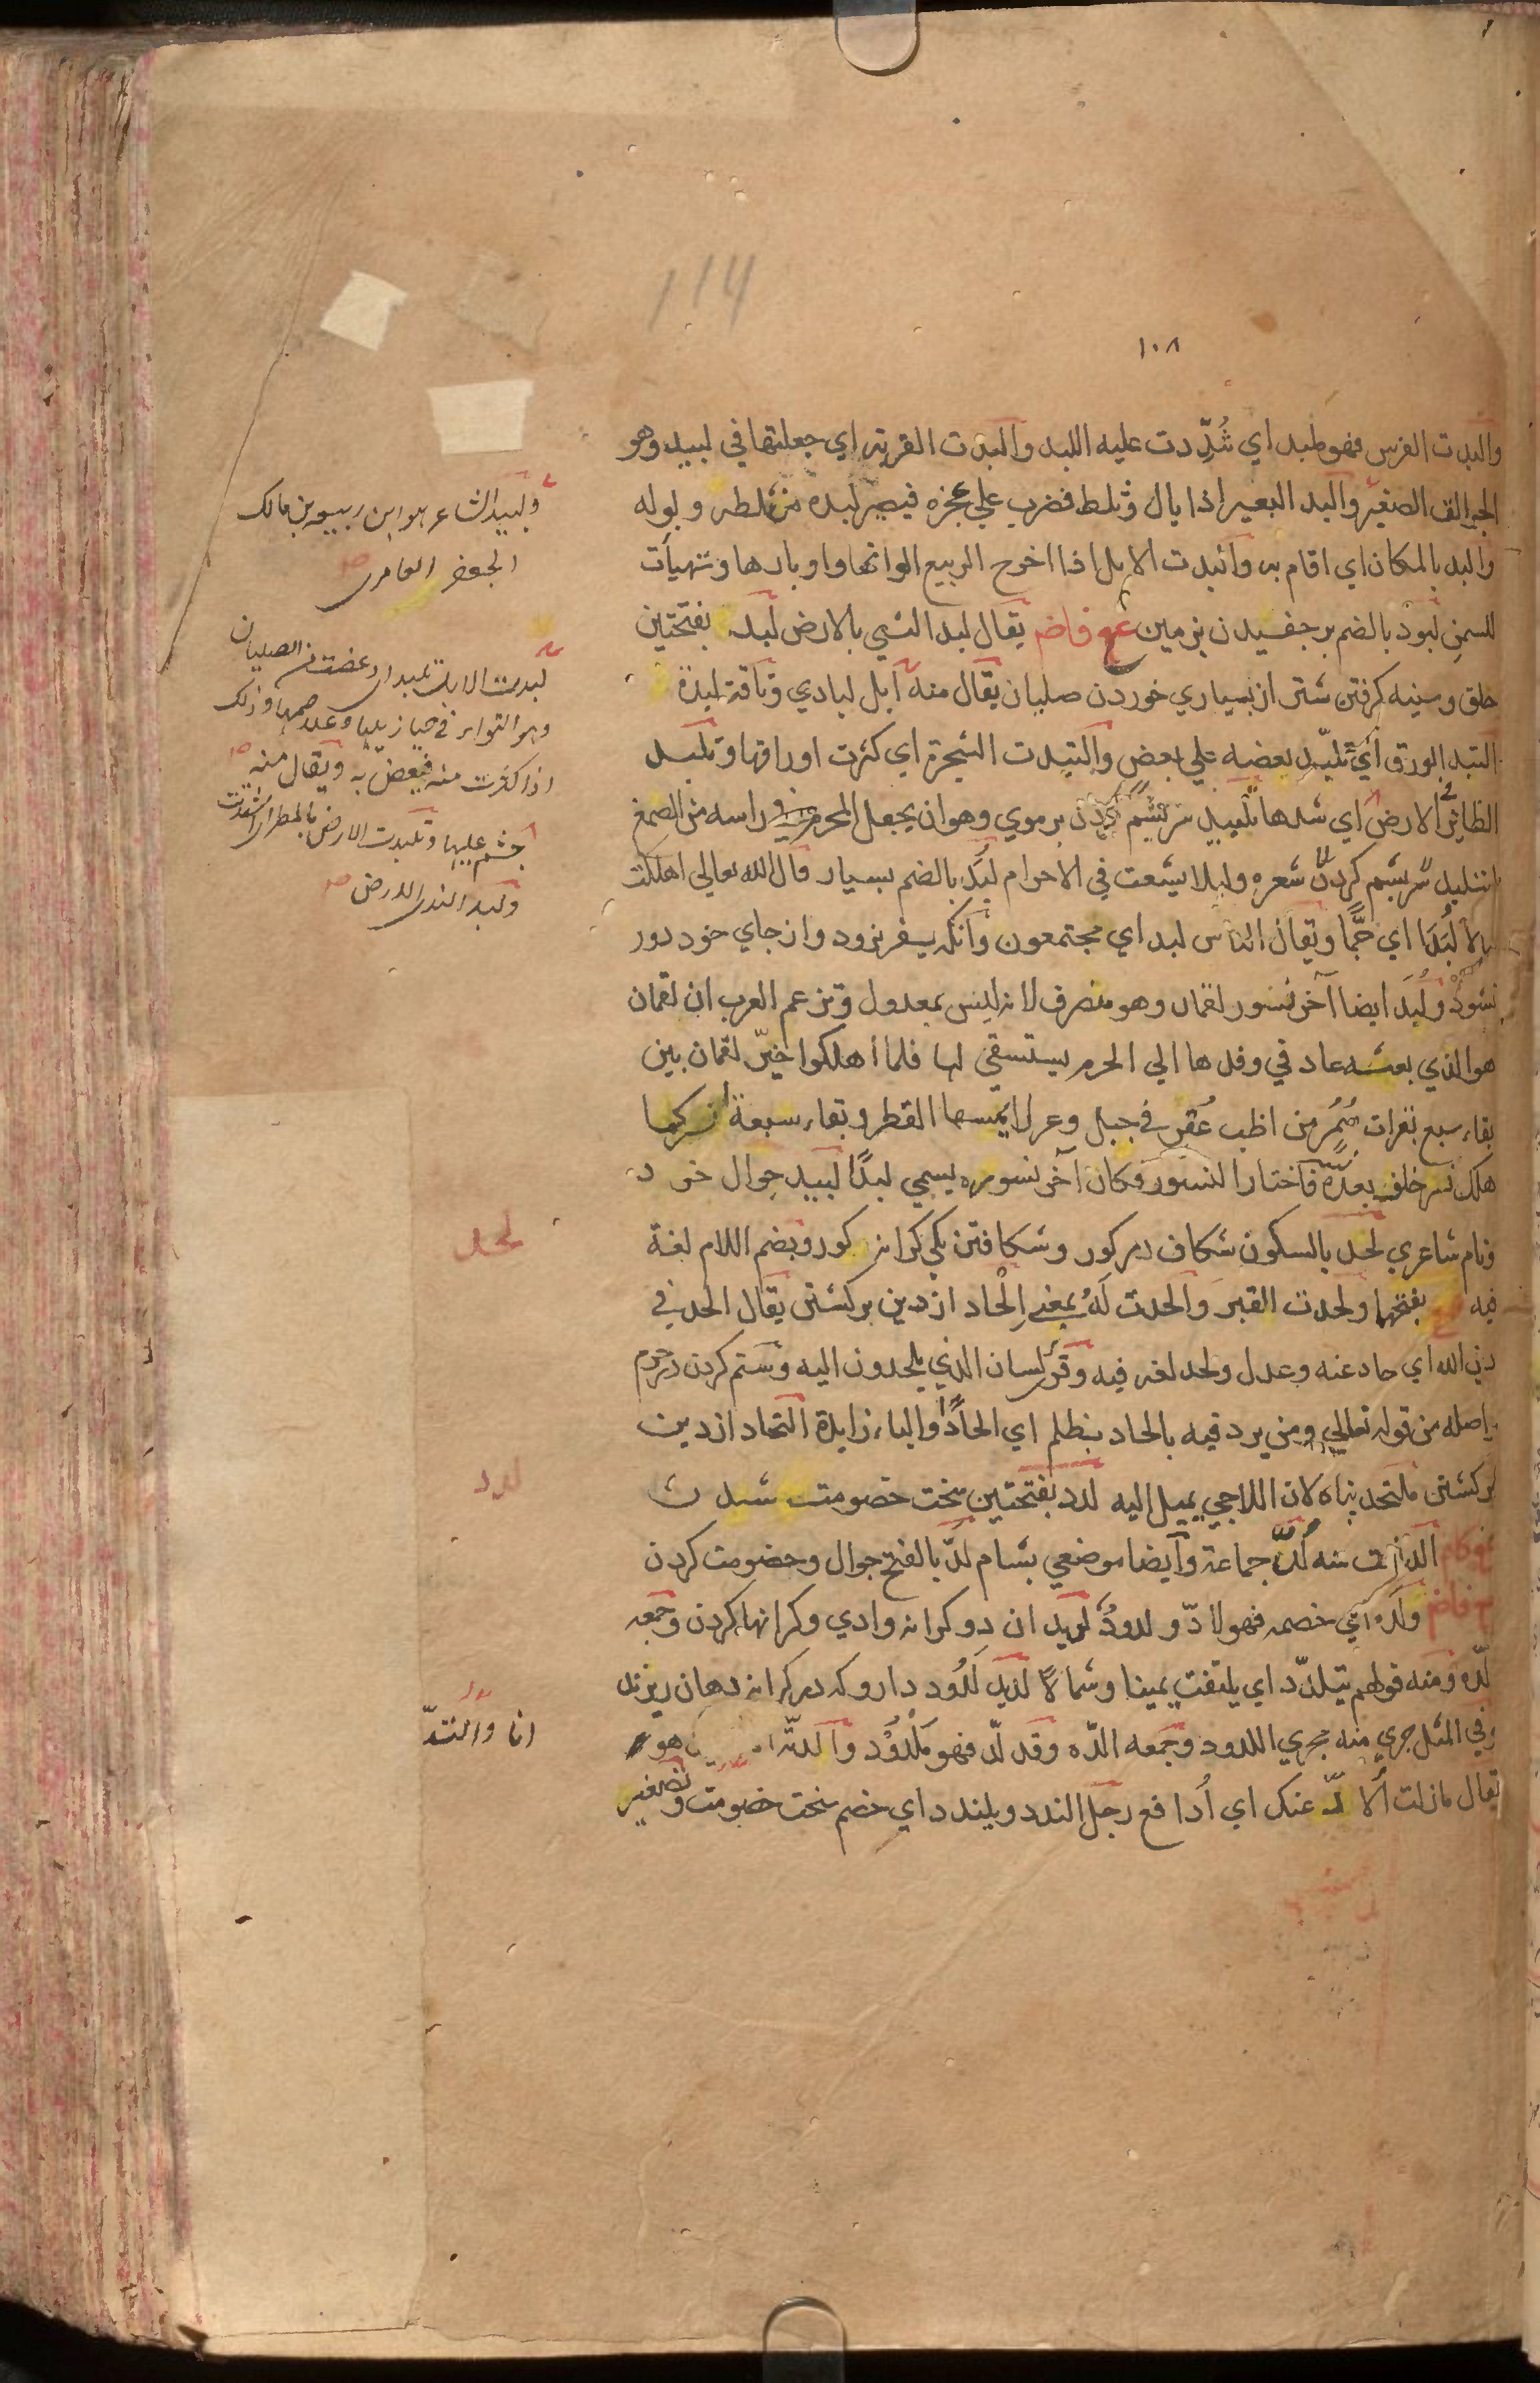 114
١٠٨
والبدت الفرس فهو ملبد اي شُدِّدت عليه اللبد والبدت القربة اي جعلتها في لبيد وهو
الجوالق الصغير والبد البعير اذا بال وثلط فضرب علي عجزه فيصير لبده من ثلطه وبوله
والبد بالمكان اي اقام به والبدت الابل اذا اخرج الربيع الوانها واوبارها وتهيأت
للسمن لبود بالضم بر جفسيدن بزمين ع فاض يقال لبد الشي بالارض لبد بفتحتين
خلق وسينه كرفتن شتر از بسياري خوردن صليان يقال منه ابل لبادي وناقة لبدة
التبد الورق اي تلبّد بعضه علي بعض والتبدت الشجرة اي كثرت اوراقها وتلبد
الطائر الارض اي
شعره وليلا يشعث في الاحرام لُبَد بالضم بسيار قال الله تعالي اهلكت
مالا لُبَدًا اي جمًّا ويقال الناس لبد اي مجتمعون وآنكه بسفر نرود واز جاي خود دور
نشود ولُبَد ايضا آخر نسور لقمان وهو منصرف لانه ليس بمعدول وتزعم العرب ان لقمان
هو الذي بعثته عاد في وفدها الي الحرم يستسقي لها فلما اهلكوا خيّر لقمان بين
بقاء سبع بقرات سُمُر من اظب عُفر في جبل وعر لا يمسها القطر وبقاء سبعة انسر كلما
هلك نسر خلف بعده نسر فاختار النسور فكان آخر نسوره يسمي لبدًا لبيد جوال خرد
ونام شاعري لحد بالسكون شكاف در كور وشكافتن يكي كرانه كور وبضم اللام لغة
فيه بفتحها ولحدت القبر والحدت لَهُ بمعني اِلْحاد از دين بركشتن يقال الحد في
دين الله اي حاد عنه وعدل ولحد لغه فيه وقرئ لسان الذي يلحدون اليه وستم كردن در حرم
واصله من قوله تعالي ومن يرد فيه بالحاد بظلم اي الحادًا والباء زايدة التحاد از دين
بركشتن ملتحد پناه لان اللاجي يميل اليه لدد بفتحتين سخت خصومت شدن
الدّ ازف منه لُدٌّ جماعة وايضا موضعي بشام لدّ بالفتح جوال وخصومت كردن
ولدّه اي خصمه فهو لادّ ولدودٌ لديدان دو كرانه وادي وكرانها كردن وجمعه
لدّه ومنه قولهم يتلدّد اي يلتفت يمينا وشمالا لديد لَدُود دارو كه در كرانه دهان ريزند
وفي المثل جري منه مجري اللدود وجمعه الدّه وقد لدّ فهو مَلْدُوْد والدته هو
يقال مازلت اُلادّ عنك اي اُدافع رجل الندد ويلندد اي خصم سخت خصومت وتصغير
ولبيد الشاعر هو ابن ربيعة بن مالك
الجعفري العامري
لبدت الابل تلبد اذ دغصت من الصليان
وهو التواء في حيازيمها وغلاصمها وذلك
اذا اكثرت منه فيغص به ويقال منه
جثم عليها وتلبدت الارض بالمطر
ولبد الندي الارض
لحد
لدد
انا والتدّ